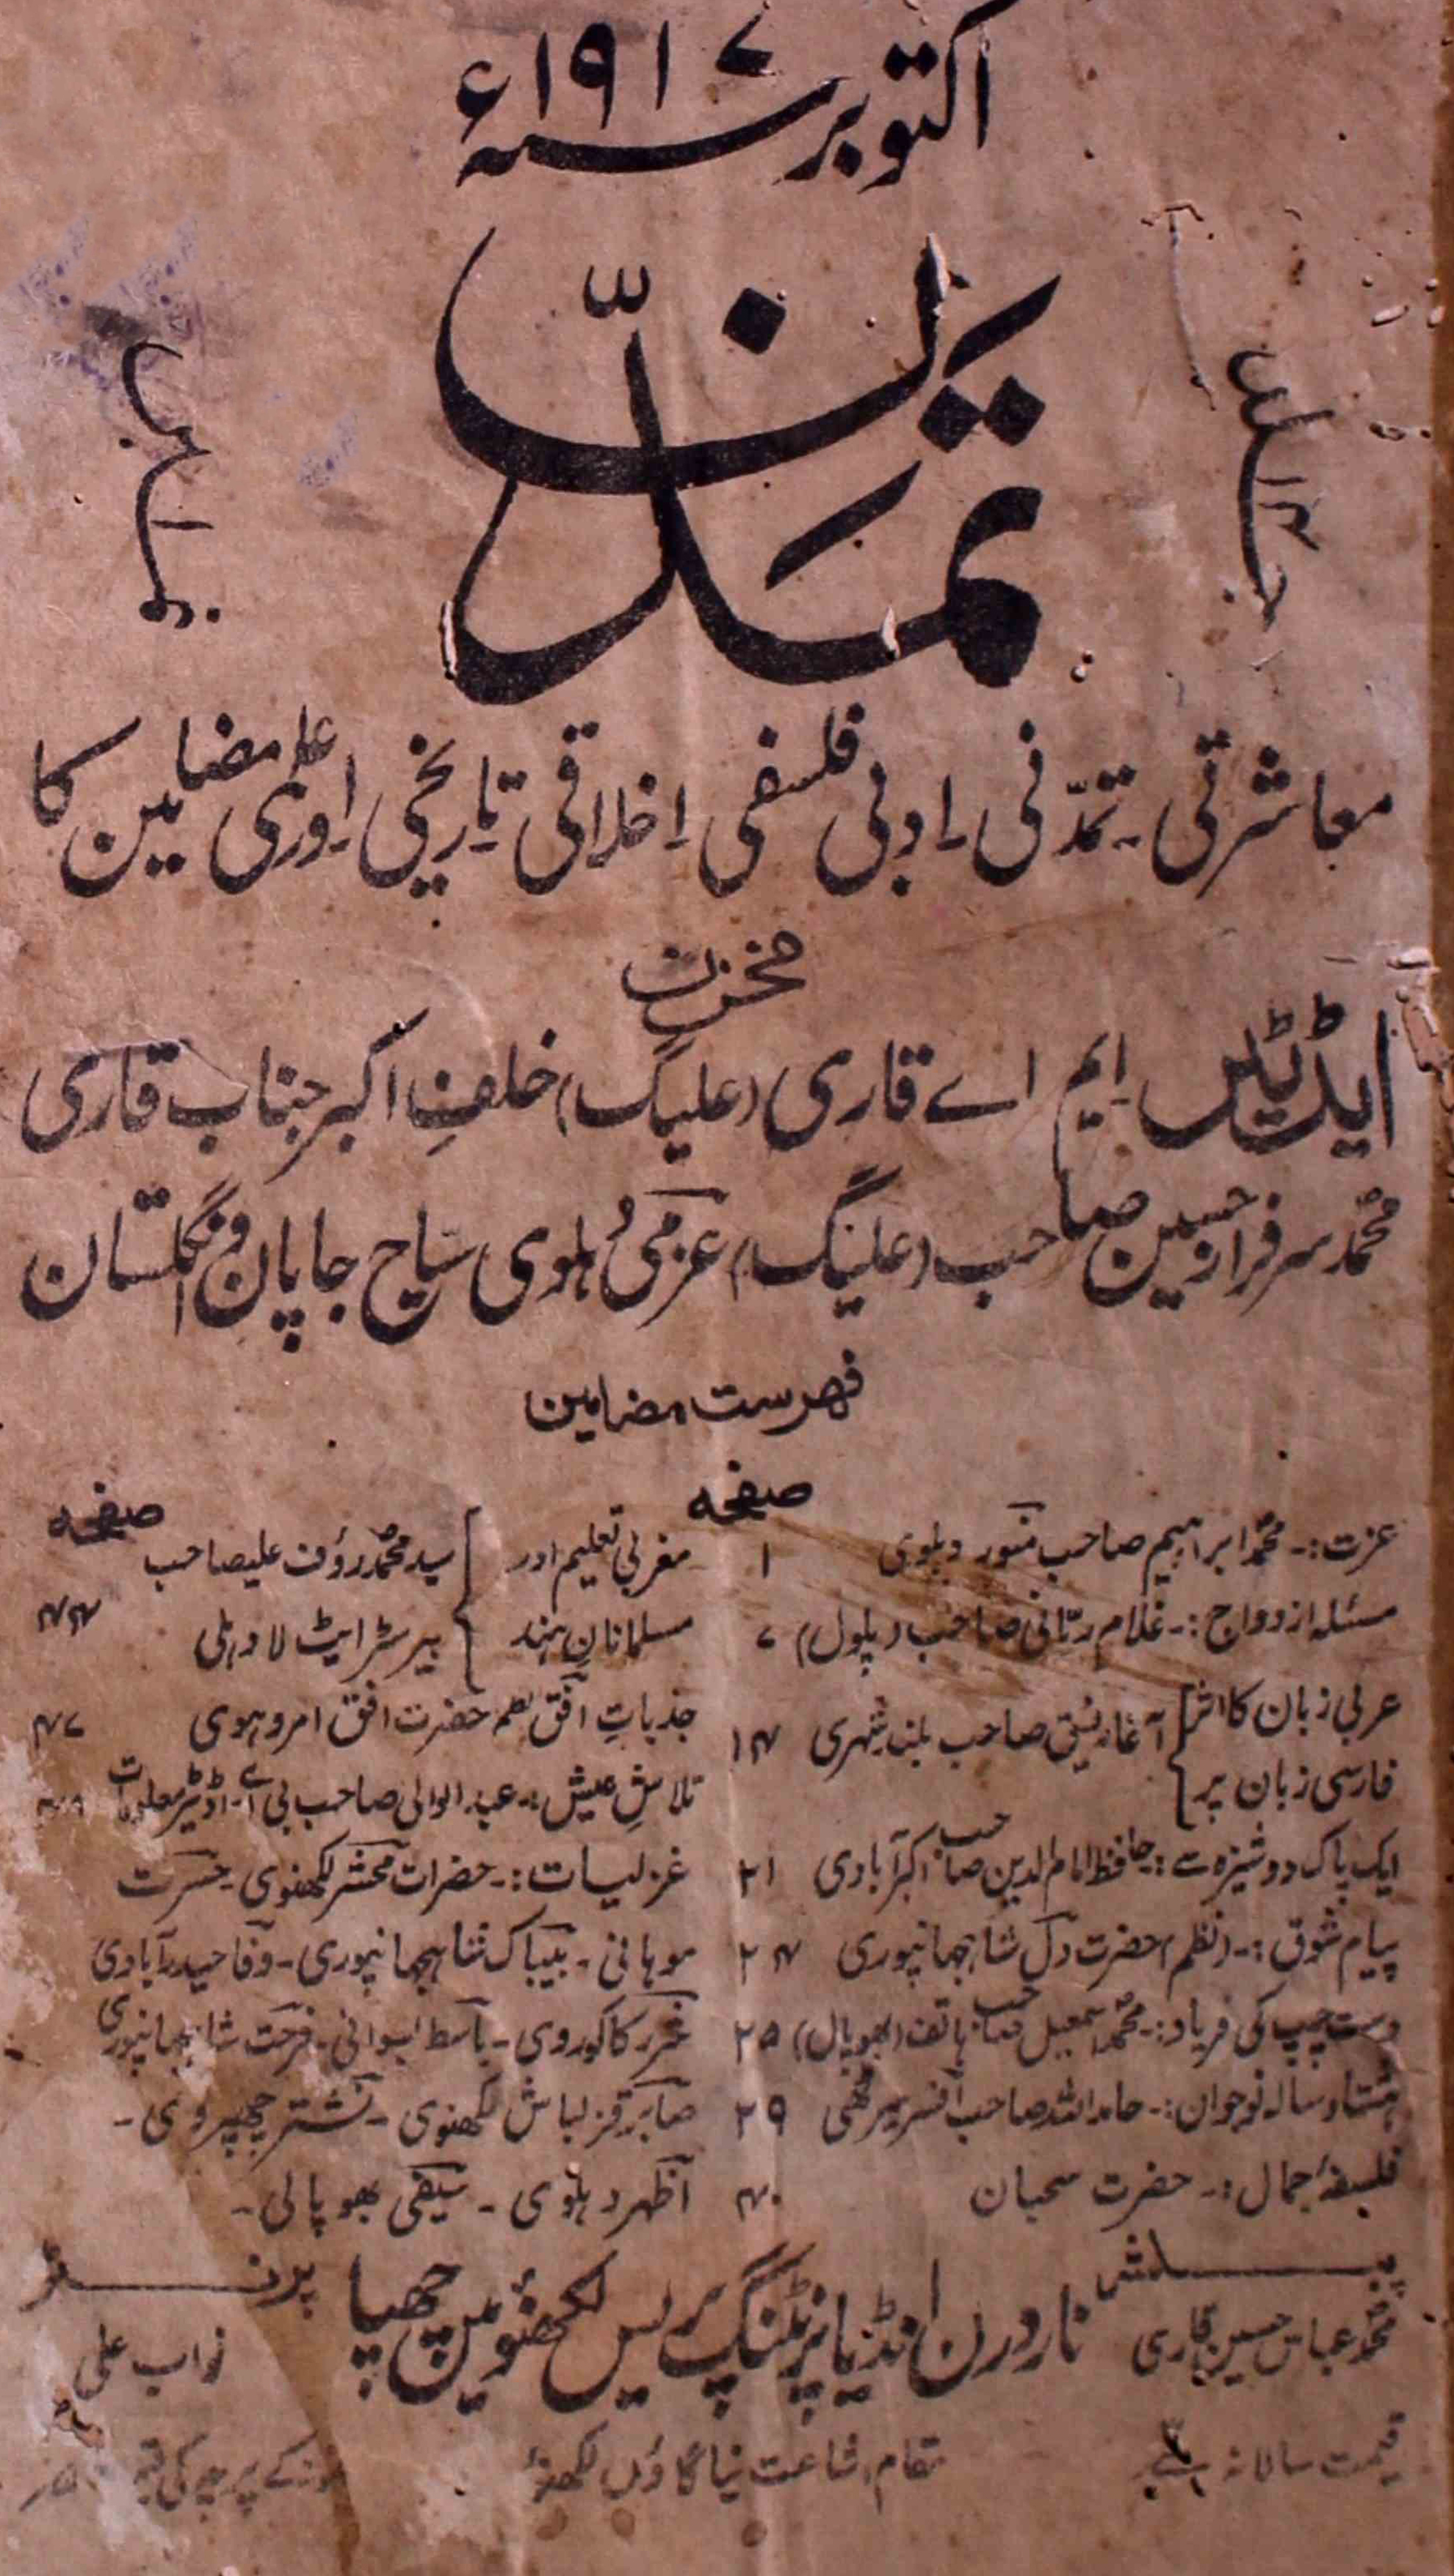 اکتوبر سنہ ۱۹۱۷ء
تمدّن
جلد ۱۳
نمبر
معاشرتی ۔ تمدّنی ۔ ادبی فلسفی اخلاقی تاریخی اور علمی مضامین کا
مخزن
ایڈیٹر ایم اے قاری (علیگ) خلفِ اکبر جناب قاری
محمّد سرفراز حسین صاحب (علیگ) عزمی دہلوی سیّاح جاپان و انگلستان
فہرست مضامین
صفحہ
عزت :۔ محمّد ابراہیم صاحب منور دہلوی ۱
مسئلہ ازدواج :۔ غلام ربّانی صاحب (پلول) ۷
عربی زبان کا اثر فارسی زبان پر آغا رفیق صاحب بلند شہری ۱۴
ایک پاک دوشیزہ سے :۔ حافظ امام الدین صاحب اکبرآبادی ۲۱
پیام شوق :۔ (نظم) حضرت دل شاہجہانپوری ۲۴
دست چپ کی فریاد :۔ محمّد اسمعیل صاحب ہاتف (بھوپال) ۲۵
ہشتاد سالہ نوجوان :۔ حامد اللہ صاحب افسر میرٹھی ۲۹
فلسفۂ جمال :۔ حضرت سحبان ۴۰
صفحہ
مغربی تعلیم اور مسلمانانِ ہند سید محمّد رؤف علیصاحب بیرسٹر ایٹ لا دہلی ۴۴
جذباتِ افق نظم حضرت افق امروہوی ۴۷
تلاشِ عیش :۔ عبد الوالی صاحب بی اے۔ اڈیٹر معلومات
غزلیات :۔ حضرات محشر لکھنوی ۔ حسرت
موہانی ۔ بیباک شاہجہانپوری ۔ وفا حیدرآبادی
کاکوروی ۔ باسط بسوانی ۔ فرحت شاہجہانپوری
صابر قزلباش لکھنوی ۔ نشتر چھپروی ۔
اظہر دہلوی ۔ سیفی بھوپالی ۔
پبلشر
محمّد عباس حسین قاری
ناردرن انڈیا پرنٹنگ پریس لکھنؤ میں چھپا
پرنٹر
نواب علی
قیمت سالانہ
مقام اشاعت نیا گاؤں لکھنؤ
کے پرچہ کی